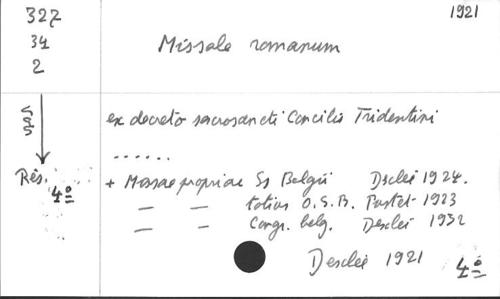 1921
327
34
2
Missale romanum
ex decreto sacrosancti Concilii Tridentini
......
Rés. 4º
+ Missae propriae SS Belgii Dsclée 1924.
— — totius O.S.B. Pustet 1923
— — Congr. belg. Desclée 1932
Desclée 1921
4º